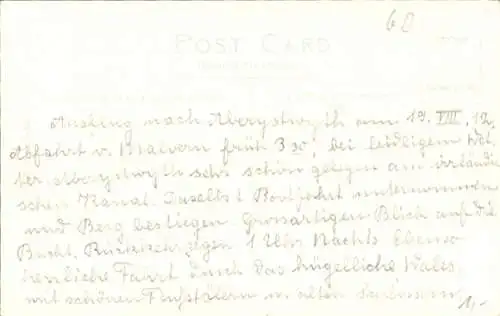 6[
POST CARD
Ausflug nach Aberystwyth am 19. VIII. 12.
Abfahrt v. Malvern früh 3 30, bei leidligem Wet-
ter. Aberystwyth sehr schön gelegen am irländi-
schen Kanal. Daselbst Bootfahrt unternommen
und Berg bestiegen Grossartigen Blick auf die
Bucht. Rückkehr gegen 1 Uhr Nachts. Ebenso
herrliche Fahrt durch das hügelliche Wales
mit schönen Flußtälern u. alten
1,-